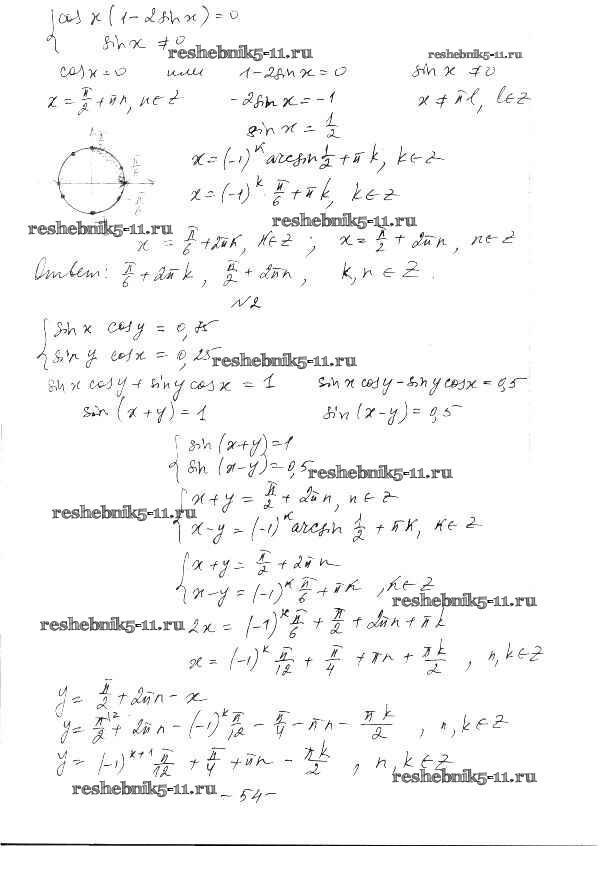 { cos x (1-2sin x) = 0
sin x ≠ 0
reshebnik5-11.ru reshebnik5-11.ru
cos x = 0 или 1-2sin x = 0 sin x ≠ 0
x = π/2 + πn, n ∈ Z -2sin x = -1 x ≠ πl, l ∈ Z
sin x = 1/2
x = (-1)^k arcsin 1/2 + πk, k ∈ Z
x = (-1)^k π/6 + πk, k ∈ Z
π/6
-π/6
reshebnik5-11.ru reshebnik5-11.ru
x = π/6 + 2πk, k ∈ Z ; x = π/2 + 2πn, n ∈ Z
Ответ: π/6 + 2πk, π/2 + 2πn, k, n ∈ Z.
N2
{ sin x cos y = 0,75
sin y cos x = 0,25
reshebnik5-11.ru
sin x cos y + sin y cos x = 1 sin x cos y - sin y cos x = 0,5
sin (x+y) = 1 sin (x-y) = 0,5
{ sin (x+y) = 1
sin (x-y) = 0,5
reshebnik5-11.ru
{ x+y = π/2 + 2πn, n ∈ Z
reshebnik5-11.ru
x-y = (-1)^k arcsin 1/2 + πk, k ∈ Z
{ x+y = π/2 + 2πn
x-y = (-1)^k π/6 + πk, k ∈ Z
reshebnik5-11.ru
reshebnik5-11.ru 2x = (-1)^k π/6 + π/2 + 2πn + πk
x = (-1)^k π/12 + π/4 + πn + πk/2, n, k ∈ Z
y = π/2 + 2πn - x
y = π/2 + 2πn - (-1)^k π/12 - π/4 - πn - πk/2, n, k ∈ Z
y = (-1)^k+1 π/12 + π/4 + πn - πk/2, n, k ∈ Z
reshebnik5-11.ru
reshebnik5-11.ru
- 54 -